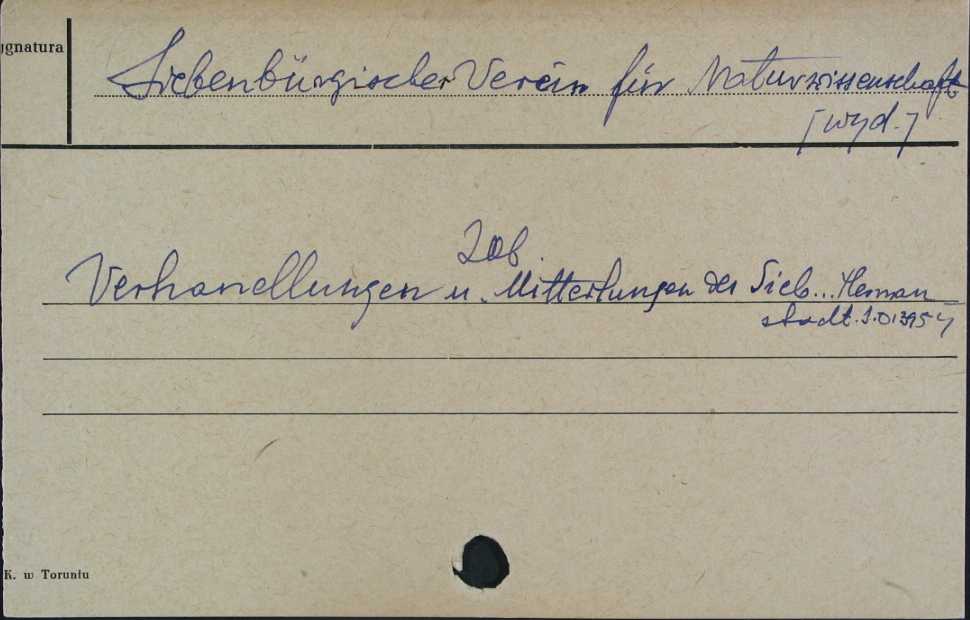 ygnatura
Siebenbürgischer Verein für Naturwissenschaft
[wyd.]
Zob.
Verhandlungen u. Mitteilungen des Sieb... Herman
stadt.
K. w Toruniu